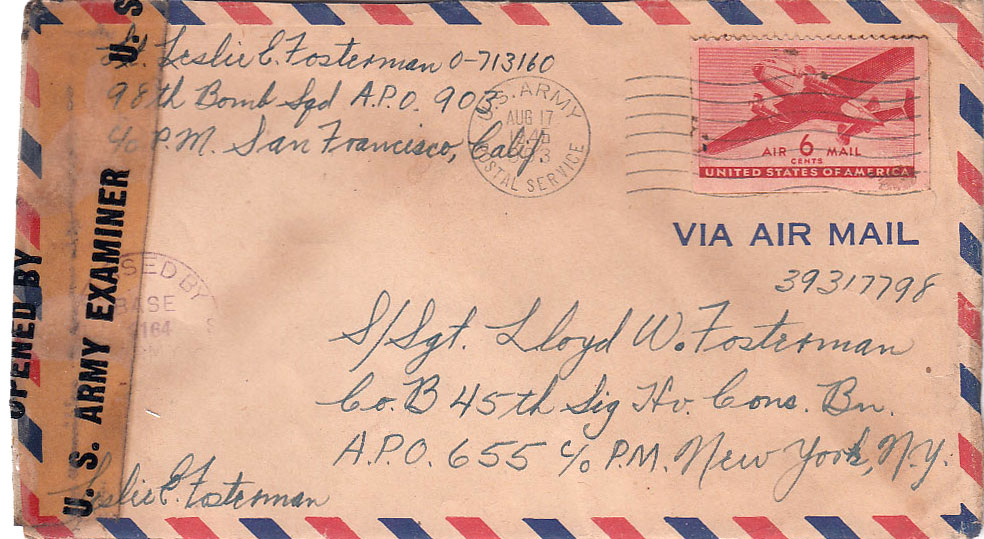 Lt. Leslie E. Fosterman O-713160
98th Bomb Sqd A.P.O. 903
c/o P.M. San Francisco, Calif
U.S. ARMY
AUG 17
POSTAL SERVICE
AIR 6 MAIL
CENTS
UNITED STATES OF AMERICA
VIA AIR MAIL
39317798
S/Sgt. Lloyd W. Fosterman
Co. B 45th Sig Hv. Cons. Bn.
A.P.O. 655 c/o P.M. New York, N.Y.
OPENED BY
U. S. ARMY EXAMINER U. S.
SED BY
BASE
164
Leslie E. Fosterman